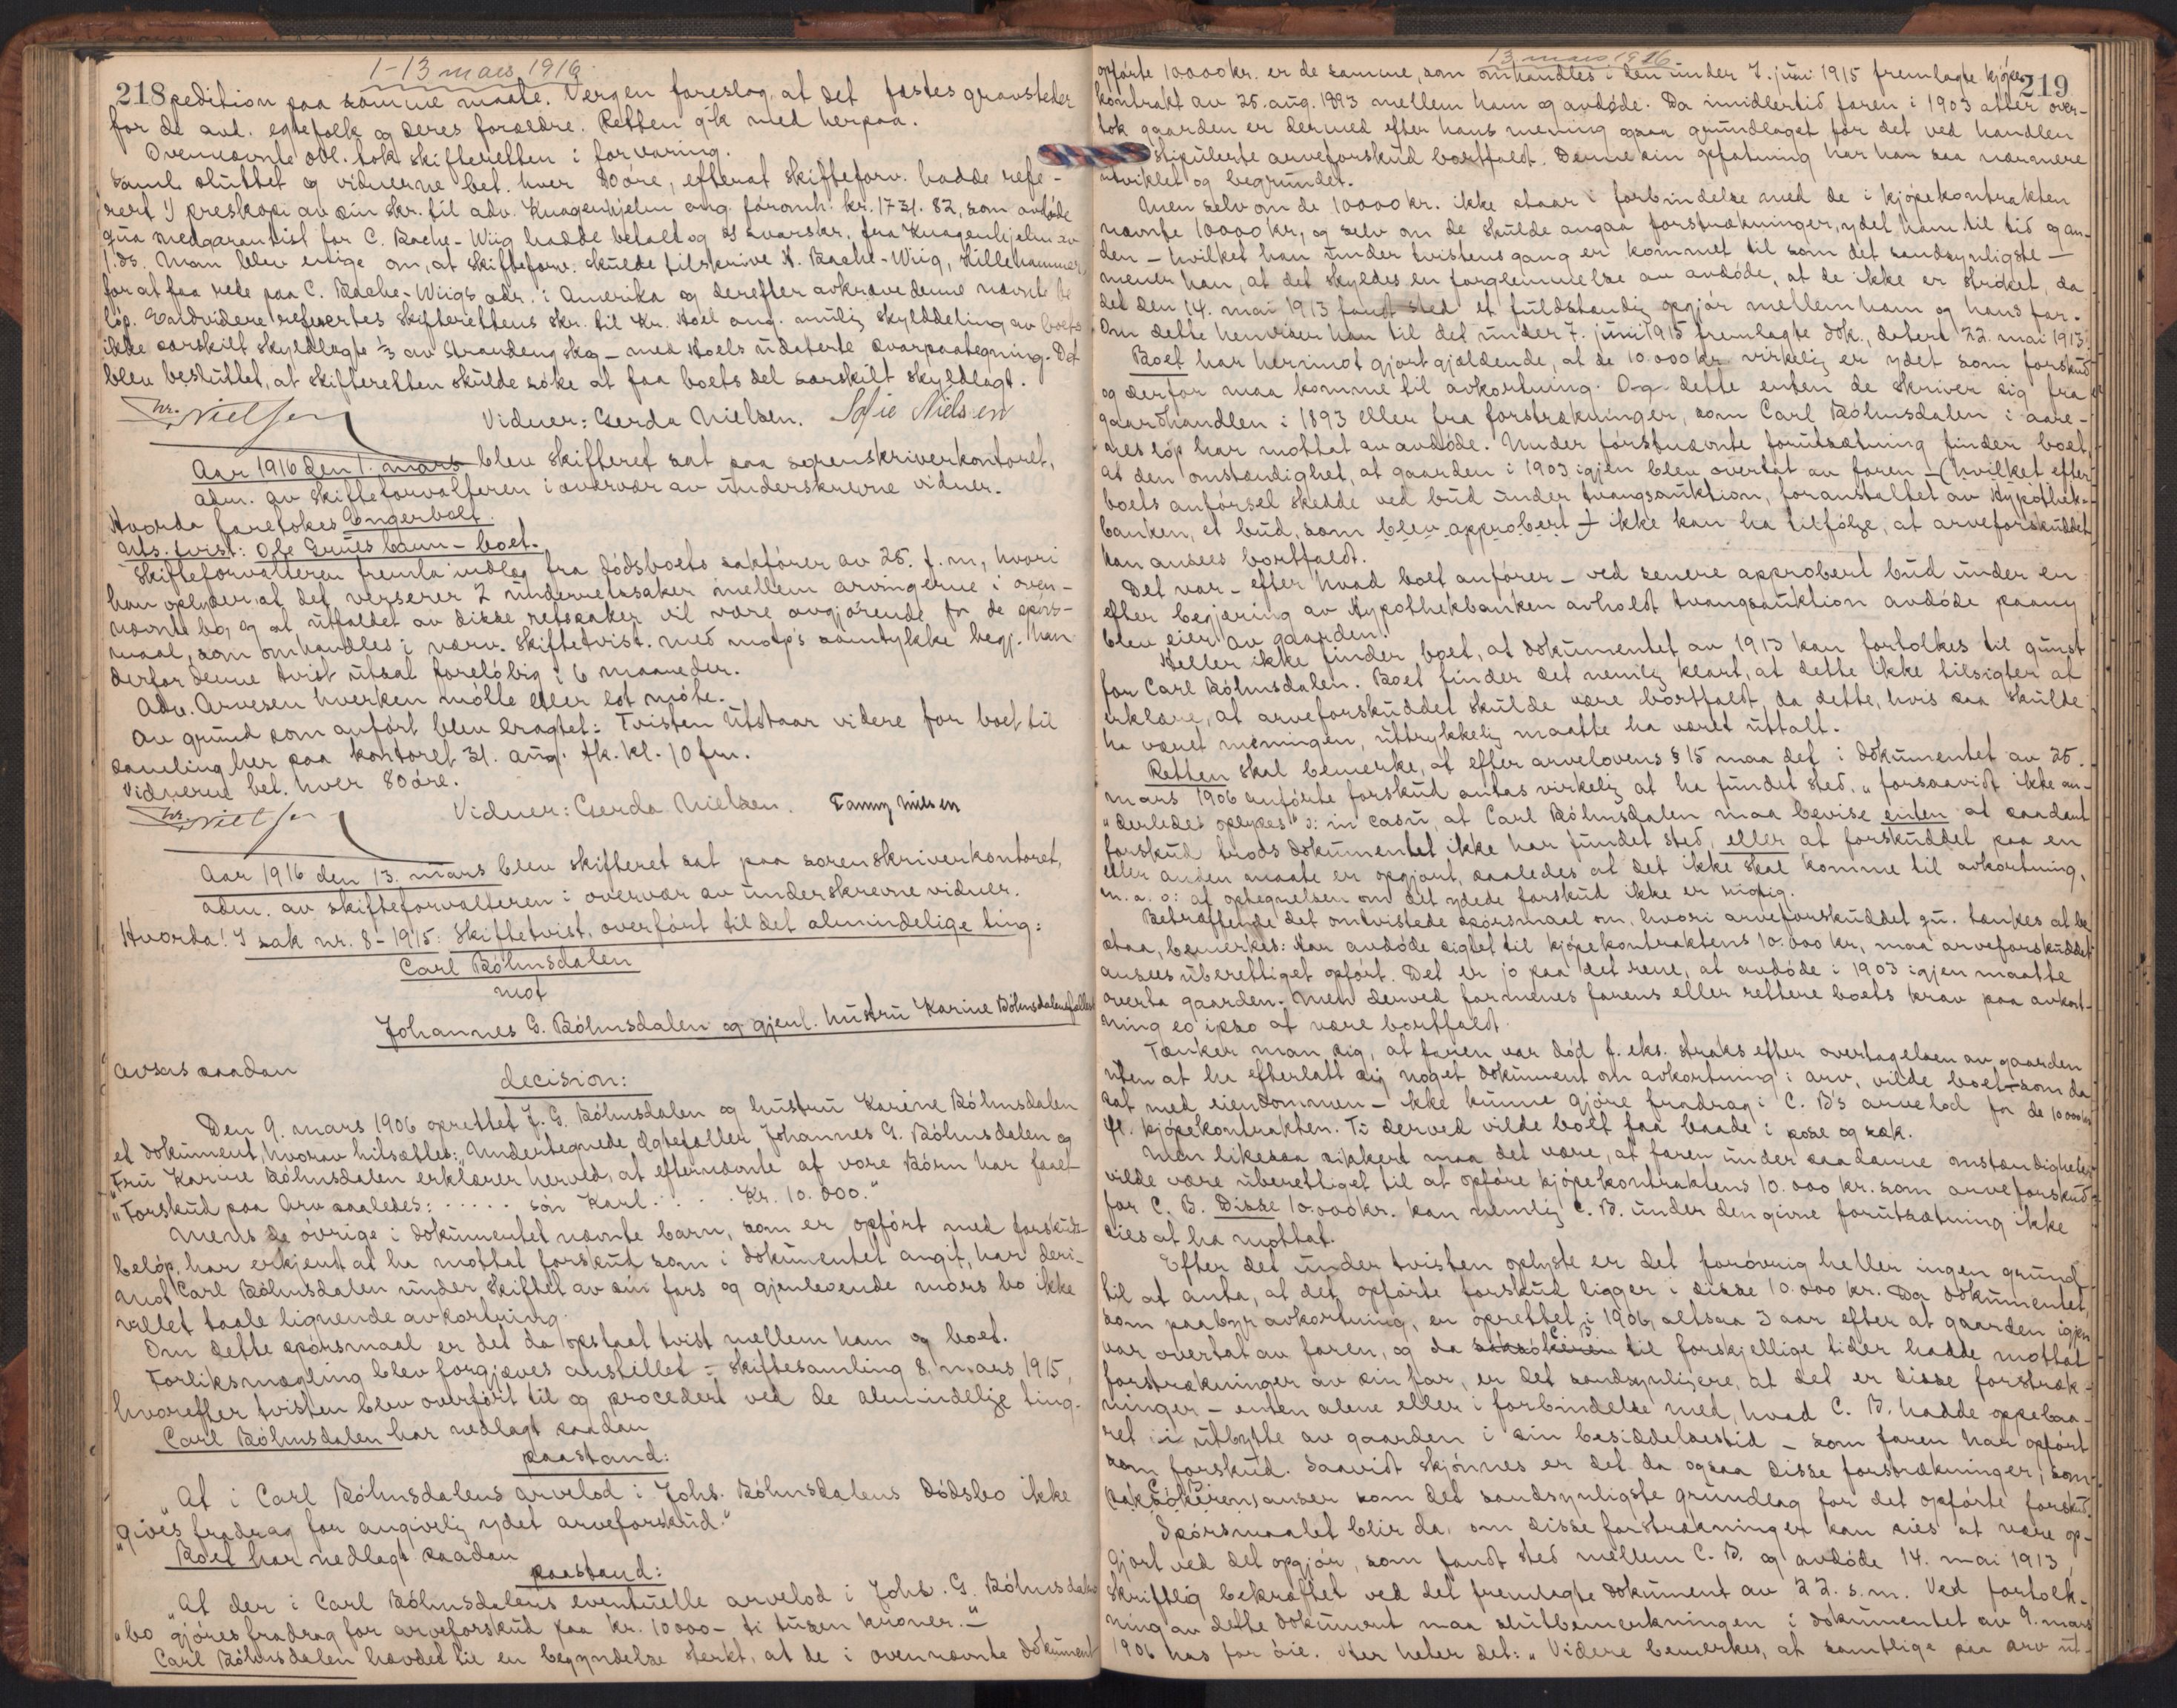 1-13 mars 1916
218 pedition paa samme maate. Vergen foreslog, at det fæstes gravsteder
for de avd. egtefolk og deres forældre. Retten gik med herpaa.
Ovennævnte obl. tok skifteretten i forvaring.
Saml. sluttet og vidnerne bet. hver 80 øre, efterat skifteforv. hadde refe-
rert 1) preskopi av sin skr. til adv. Knagenhjelm ang. foromh. kr. 1731.82, som avdøde
qua medgarantist for C. Bache-Wiig hadde betalt og 2) svarskr. fra Knagenhjelm av
1. ds. Man blev enige om, at skifteforv. skulde tilskrive N. Bache-Wiig, Lillehammer,
for at faa rede paa C. Bache-Wiigs adr. i Amerika og derefter avkræve denne nævnte be
løp. Endvidere refertes skifterettens skr. til Kr. Hoel ang. mulig skylddeling av boets
ikke særskilt skyldlagte 1/3 av Strandeng skog - med Hoels udaterte svarpaategning. Det
blev besluttet, at skifteretten skulde søke at faa boets del særskilt skyldlagt.
Hr. Nielsen Vidner: Gerda Nielsen. Sofie Nielsen
Aar 1916 den 1. mars blev skifteret sat paa sorenskriverkontoret,
adm. av skifteforvalteren i overvær av underskrevne vidner.
Hvorda foretokes Engerbolt
Uts. tvist: Ole Gruesbaun-boet.
Skifteforvalteren fremla indlæg fra dødsboets sakfører av 25. f. m., hvori
han oplyser, at det verserer 2 underretssaker mellem arvingerne i oven-
nævnte bo, og at utfaldet av disse retssaker vil være avgjørende for de spørs-
maal, som omhandles i nærv. skiftetvist. Med motp's samtykke begj. han
derfor denne tvist utsat foreløbig i 6 maaneder.
Adv. Arnesen hverken møtte eller lot møte.
Av grund som anført blev eragtet: Tvisten utstaar videre for boet til
samling her paa kontoret 31. aug. fk. kl. 10 fm.
Vidnerne bet. hver 80 øre.
Hr. Nielsen Vidner: Gerda Nielsen. Fanny Nielsen
Aar 1916 den 13. mars blev skifteret sat paa sorenskriverkontoret,
adm. av skifteforvalteren i overvær av underskrevne vidner.
Hvorda! I sak nr. 8-1915: Skiftetvist, overført til det almindelige ting:
Carl Bølmsdalen
mot
Johannes G. Bølmsdalen og gjenl. hustru Karine Bølmsdalens fælles
avsas saadan
decision:
Den 9. mars 1906 oprettet J. G. Bølmsdalen og hustru Karine Bølmsdalen
et dokument, hvorav hitsættes: "Undertegnede Ægtefæller Johannes G. Bølmsdalen og
"Fru Karine Bølmsdalen erklærer herved, at efternævnte af vore Børn har faaet
"Forskud paa Arv saaledes: ..... søn Karl .... Kr. 10.000."
Mens de øvrige i dokumentet nævnte barn, som er opført med forskuds-
beløp, har erkjent at ha mottat forskud som i dokumentet angit, har deri-
mot Carl Bølmsdalen under skiftet av sin fars og gjenlevende mors bo ikke
villet taale lignende avkortning.
Om dette spørsmaal er det da opstaat tvist mellem ham og boet.
Forliksmægling blev forgjæves anstillet i skiftesamling 8. mars 1915,
hvorefter tvisten blev overført til og procedert ved de almindelige ting.
Carl Bølmsdalen har nedlagt saadan
paastand:
"At i Carl Bølmsdalens arvelod i Johs. Bølmsdalens dødsbo ikke
"gives fradrag for angivelig ydet arveforskud."
Boet har nedlagt saadan
paastand:
"At der i Carl Bølmsdalens eventuelle arvelod i Johs. G. Bølmsdalens
"bo gjøres fradrag for arveforskud paa kr. 10000- ti tusen kroner."-
Carl Bølmsdalen hævdet til en begyndelse sterkt, at de i ovennævnte dokument
13 mars 1916.
219
opførte 10000 kr. er de samme, som omhandles i den under 7. juni 1915 fremlagte kjøpe
kontrakt av 25. aug. 1893 mellem ham og avdøde. Da imidlertid faren i 1903 atter over-
tok gaarden er dermed efter hans mening ogsaa grundlaget for det ved handlen
stipulerte arveforskud bortfaldt. Denne sin opfatning har han saa nærmere
utviklet og begrundet.
Men selv om de 10000 kr. ikke staar i forbindelse med de i kjøpekontrakten
nævnte 10000 kr, og selv om de skulde angaa forstrækninger, ydet ham til tid og an-
den - hvilket han under tvistens gang er kommet til som det sandsynligste -
mener han, at det skyldes en forglemmelse av avdøde, at de ikke er strøket, da
det den 14. mai 1913 fandt sted et fuldstændig opgjør mellem ham og hans far.
Om dette henviser han til det under 7. juni 1915 fremlagte dok., datert 22. mai 1913.
Boet har herimot gjort gjældende, at de 10.000 kr. virkelig er ydet som forskud
og derfor maa komme til avkortning. Og dette enten de skriver sig fra
gaardhandlen i 1893 eller fra forstrækninger, som Carl Bølmsdalen i aare-
nes løp har mottat av avdøde. Under førstnævnte forutsætning finder boet,
at den omstændighet, at gaarden i 1903 igjen blev overtat av faren - (hvilket efter
boets anførsel skedde ved bud under tvangsauktion, foranstaltet av Hypothek-
banken, et bud, som blev approbert) - ikke kan ha tilfølge, at arveforskuddet
kan ansees bortfaldt.
Det var - efter hvad boet anfører - ved senere approbert bud under en
efter begjæring av Hypothekbanken avholdt tvangsauktion avdøde paany
blev eier av gaarden.
Heller ikke finder boet, at dokumentet av 1913 kan fortolkes til gunst
for Carl Bølmsdalen. Boet finder det nemlig klart, at dette ikke tilsigter at
erklære, at arveforskuddet skulde være bortfaldt, da dette, hvis saa skulde
ha været meningen, uttrykkelig maatte ha været uttalt.
Retten skal bemerke, at efter arvelovens § 15 maa det i dokumentet av 25.
mars 1906 anførte forskud antas virkelig at ha fundet sted, "forsaavidt ikke an-
"derledes oplyses" ɔ: in casu, at Carl Bølmsdalen maa bevise enten at saadant
forskud trods dokumentet ikke har fundet sted, eller at forskuddet paa en
eller anden maate er opgjort, saaledes at det ikke skal komme til avkortning,
m. a. o: at optegnelsen om det ydede forskud ikke er rigtig.
Betræffende det omtvistede spørsmaal om, hvori arveforskuddet gu. tænkes at be
staa, bemerkes: Har avdøde sigtet til kjøpekontraktens 10.000 kr, maa arveforskuddet
ansees uberettiget opført. Det er jo paa det rene, at avdøde i 1903 igjen maatte
overta gaarden. Men derved formenes farens eller rettere boets krav paa avkort-
ning eo ipso at være bortfaldt.
Tænker man sig, at faren var død f. eks. straks efter overtagelsen av gaarden
uten at ha efterlatt sig noget dokument om avkortning i arv, vilde boet - som da
sat med eiendommen - ikke kunne gjøre fradrag i C. B's arvelod for de 10000 kr
ifl. kjøpekontrakten. Ti derved vilde boet faa baade i pose og sæk.
Men likesaa sikkert maa det være, at faren under saadanne omstændigheter
vilde være uberettiget til at opføre kjøpekontraktens 10.000 kr. som arveforskud
for C. B. Disse 10.000 kr. kan nemlig C. B. under den givne forutsætning ikke
sies at ha mottat.
Efter det under tvisten oplyste er det forøvrig heller ingen grund
til at anta, at det opførte forskud ligger i disse 10.000 kr. Da dokumentet,
som paabyr avkortning, er oprettet i 1906, altsaa 3 aar efter at gaarden igjen
var overtat av faren, og da saksøkeren C. B. til forskjellige tider hadde mottat
forstrækninger av sin far, er det sandsynligere, at det er disse forstræk-
ninger - enten alene eller i forbindelse med, hvad C. B. hadde oppebaa-
ret i utbytte av gaarden i sin besiddelsestid - som faren har opført
som forskud. Saavidt skjønnes er det da ogsaa disse forstrækninger, som
C. B. (saksøkeren) anser som det sandsynligste grundlag for det opførte forskud.
Spørsmaalet blir da, om disse forstrækninger kan sies at være op-
gjort ved det opgjør, som fandt sted mellem C. B. og avdøde 14. mai 1913,
skriftlig bekræftet ved det fremlagte dokument av 22. s. m. Ved fortolk-
ning av dette dokument maa slutbemerkningen i dokumentet av 9. mars
1906 has for øie. Her heter det: "Videre bemerkes, at samtlige paa arv ut-